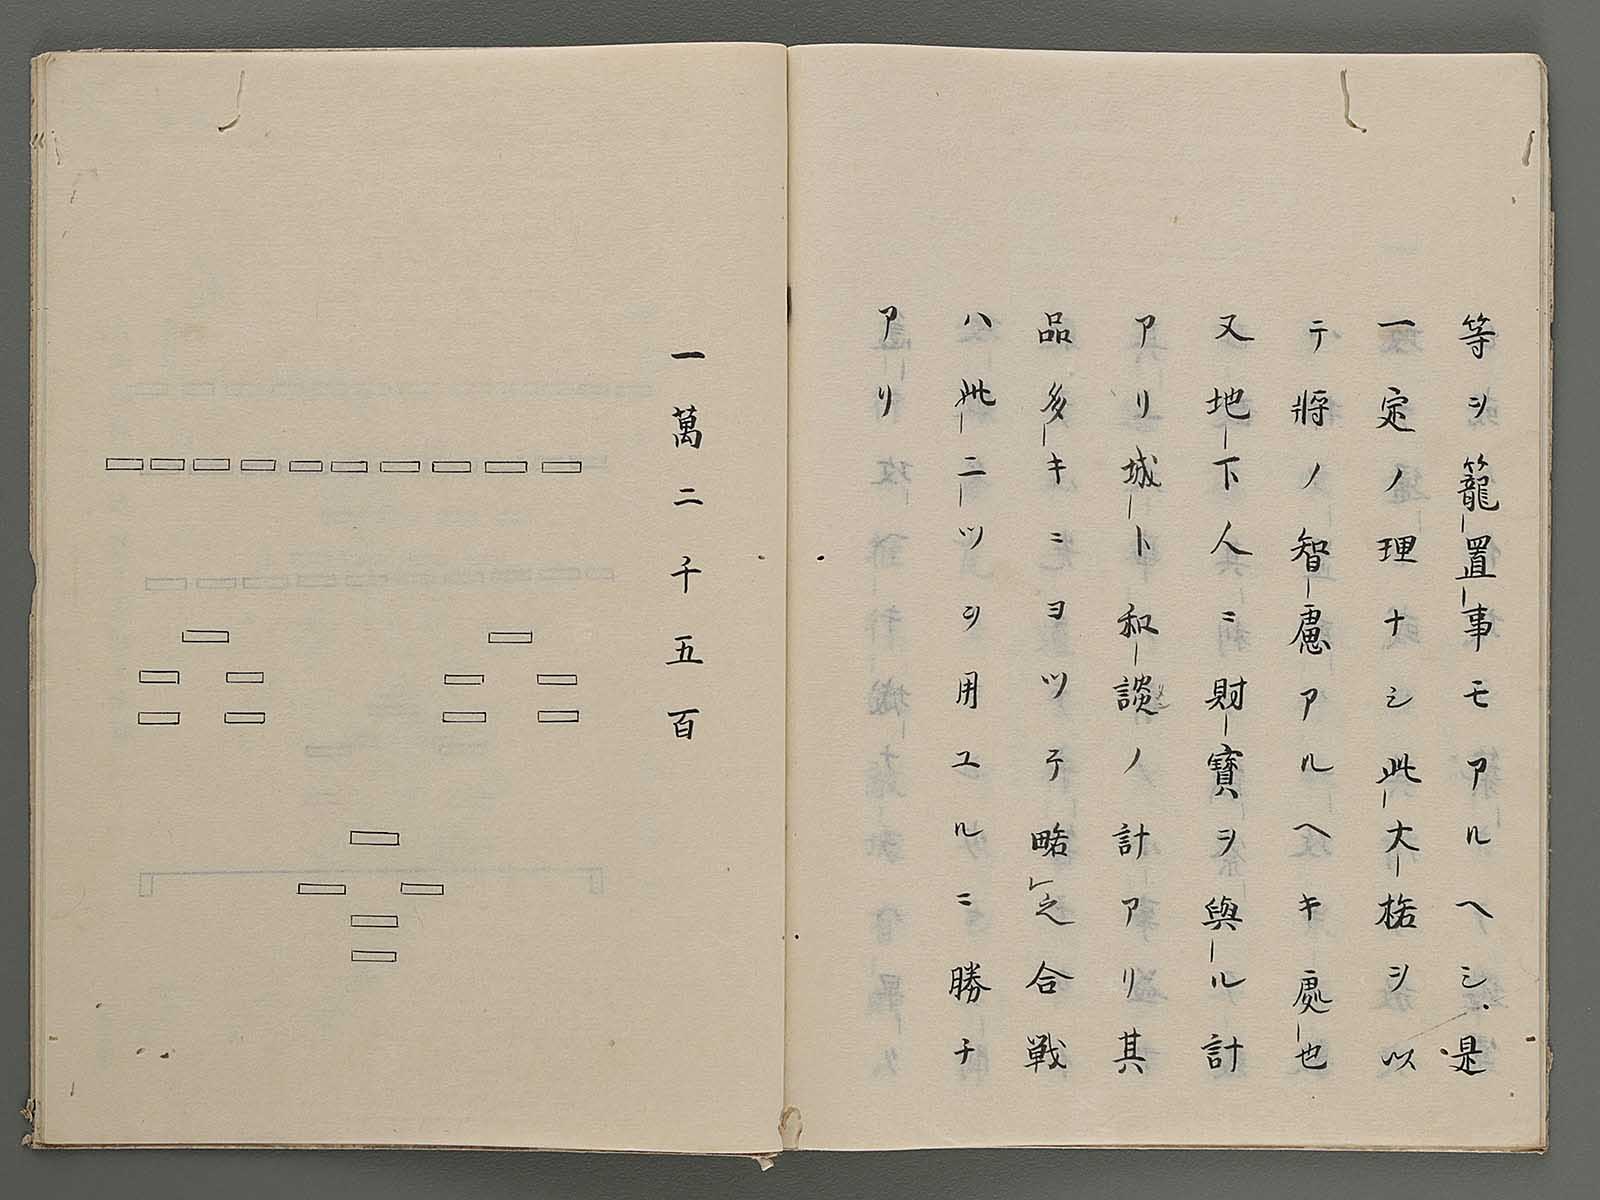 等ヲ籠置事モアルヘシ是
一定ノ理ナシ此大格ヲ以
テ將ノ智慮アルヘキ處也
又地下人ニ財寶ヲ與ル計
アリ城ト和談ノ計アリ其
品多キニヨツテ略之合戦
ハ此二ツヲ用ユルニ勝チ
アリ
一萬二千五百